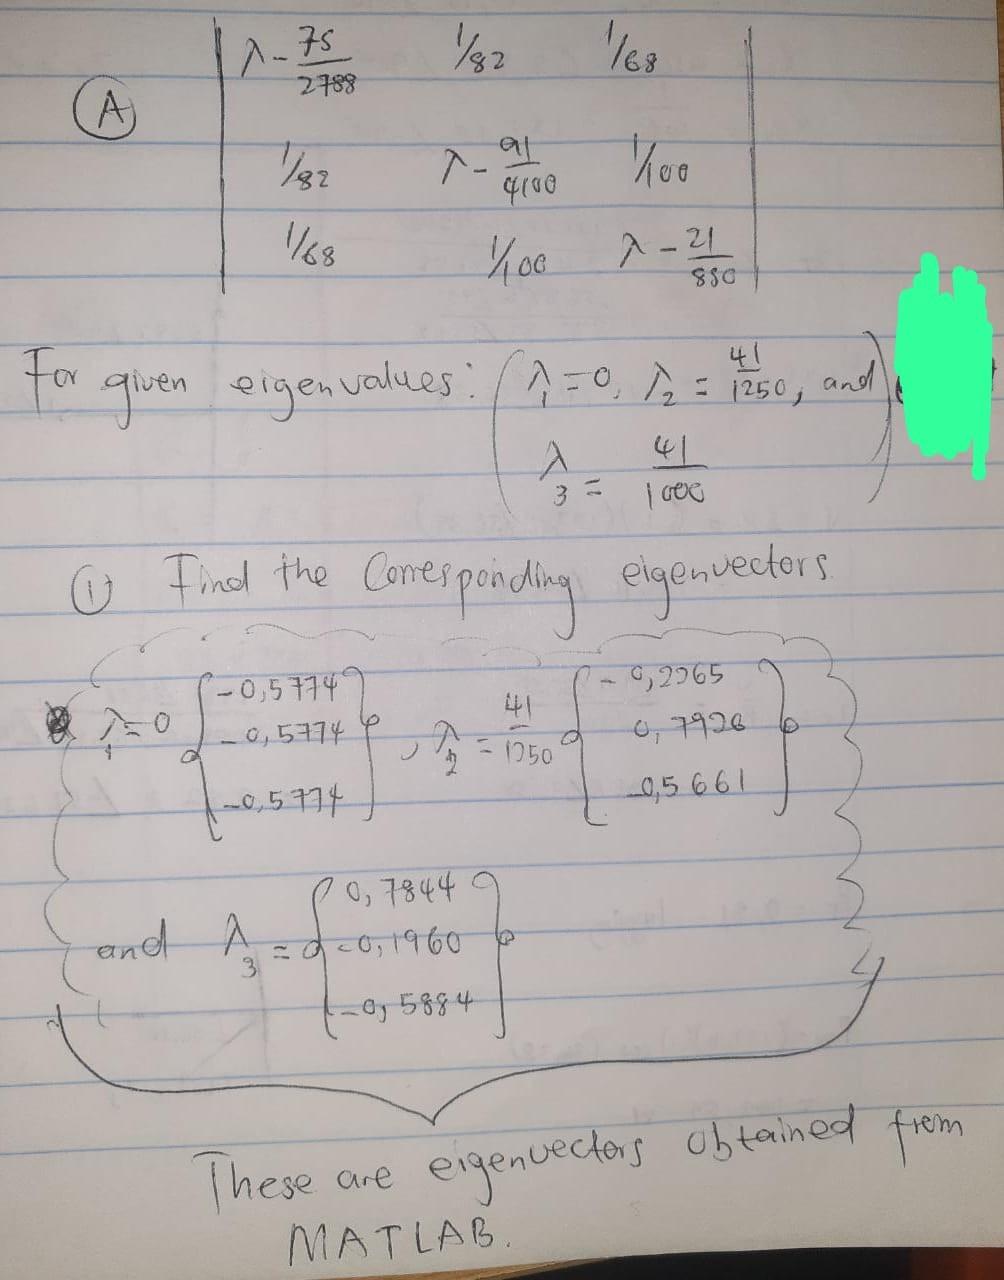 λ - 75/2788 1/82 1/68
(A)
1/82 λ - 91/4100 1/100
1/68 1/100 λ - 21/850
For given eigenvalues: (λ₁ = 0, λ₂ = 41/1250, and
λ₃ = 41/1000)
(1) Find the Corresponding eigenvectors.
λ₁ = 0 [-0,5774 -0,5774 -0,5774], λ₂ = 41/1250 [-0,2265 0,7926 -0,5661]
and λ₃ = [0,7844 -0,1960 -0,5884]
These are eigenvectors obtained from
MATLAB.